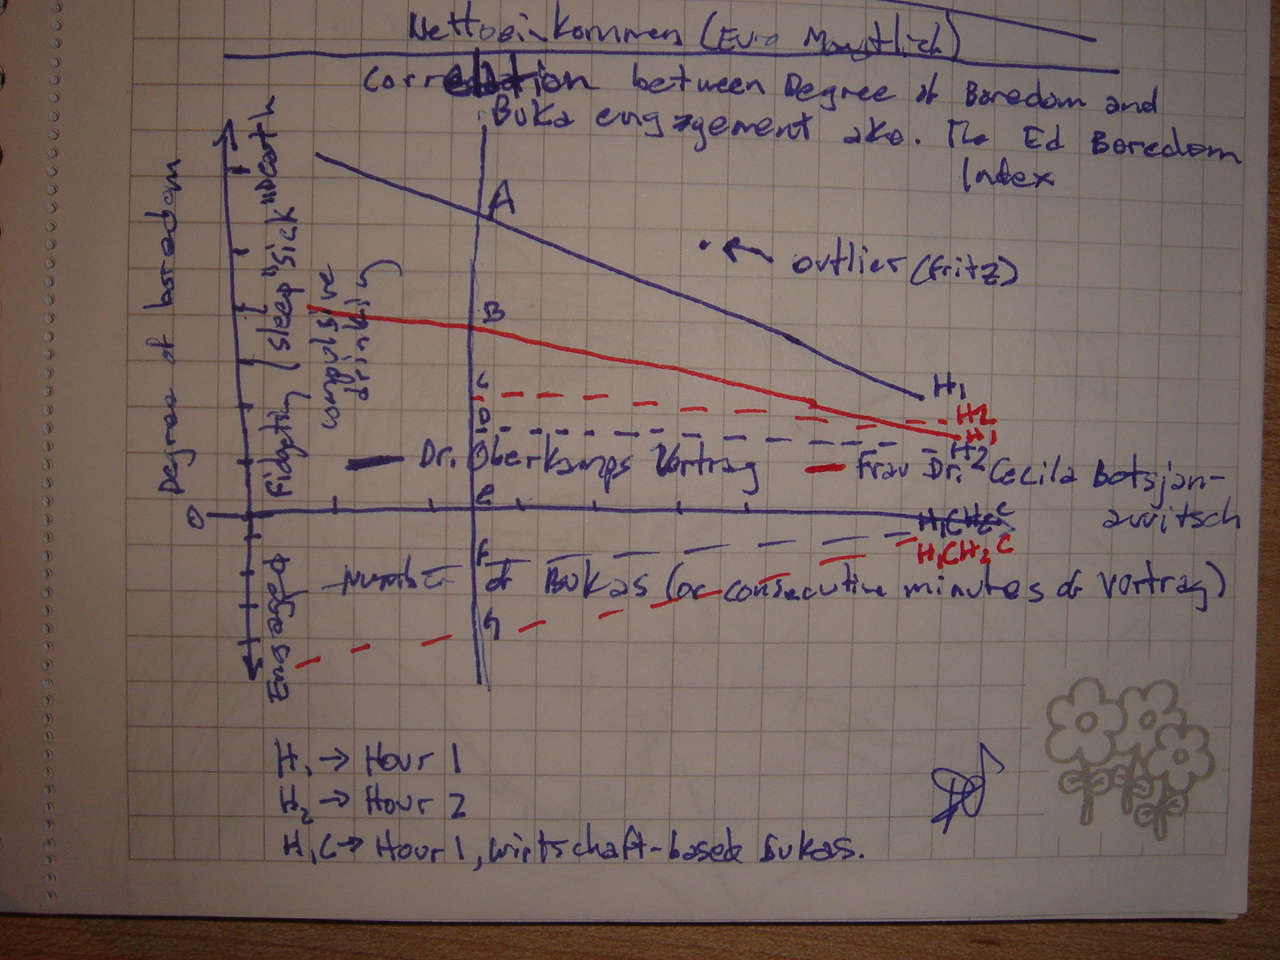 Nettoeinkommen (Euro Monatlich)
Correlation between Degree of Boredom and
Buka engagement aka. The Ed Boredom
Index
Degree of boredom
"Death"
Fidgeting / sleep "sick"
compulsive
drinking
Engaged
A
outlier (Fritz)
B
H1
C
H2
H1
D
H2
Dr. Oberkamps Vortrag
Frau Dr. Cecila Botsjan-
awitsch
0
E
H1CH2C
H1CH2C
F
Number of Bukas (or consecutive minutes of Vortrag)
G
H1 → Hour 1
H2 → Hour 2
H1C → Hour 1, wirtschaft-based Bukas.